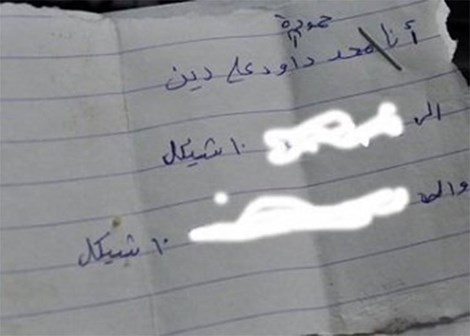 حمودة
أنا محمد داود علي دين
الى ١٠ شيكل
والى ١٠ شيكل